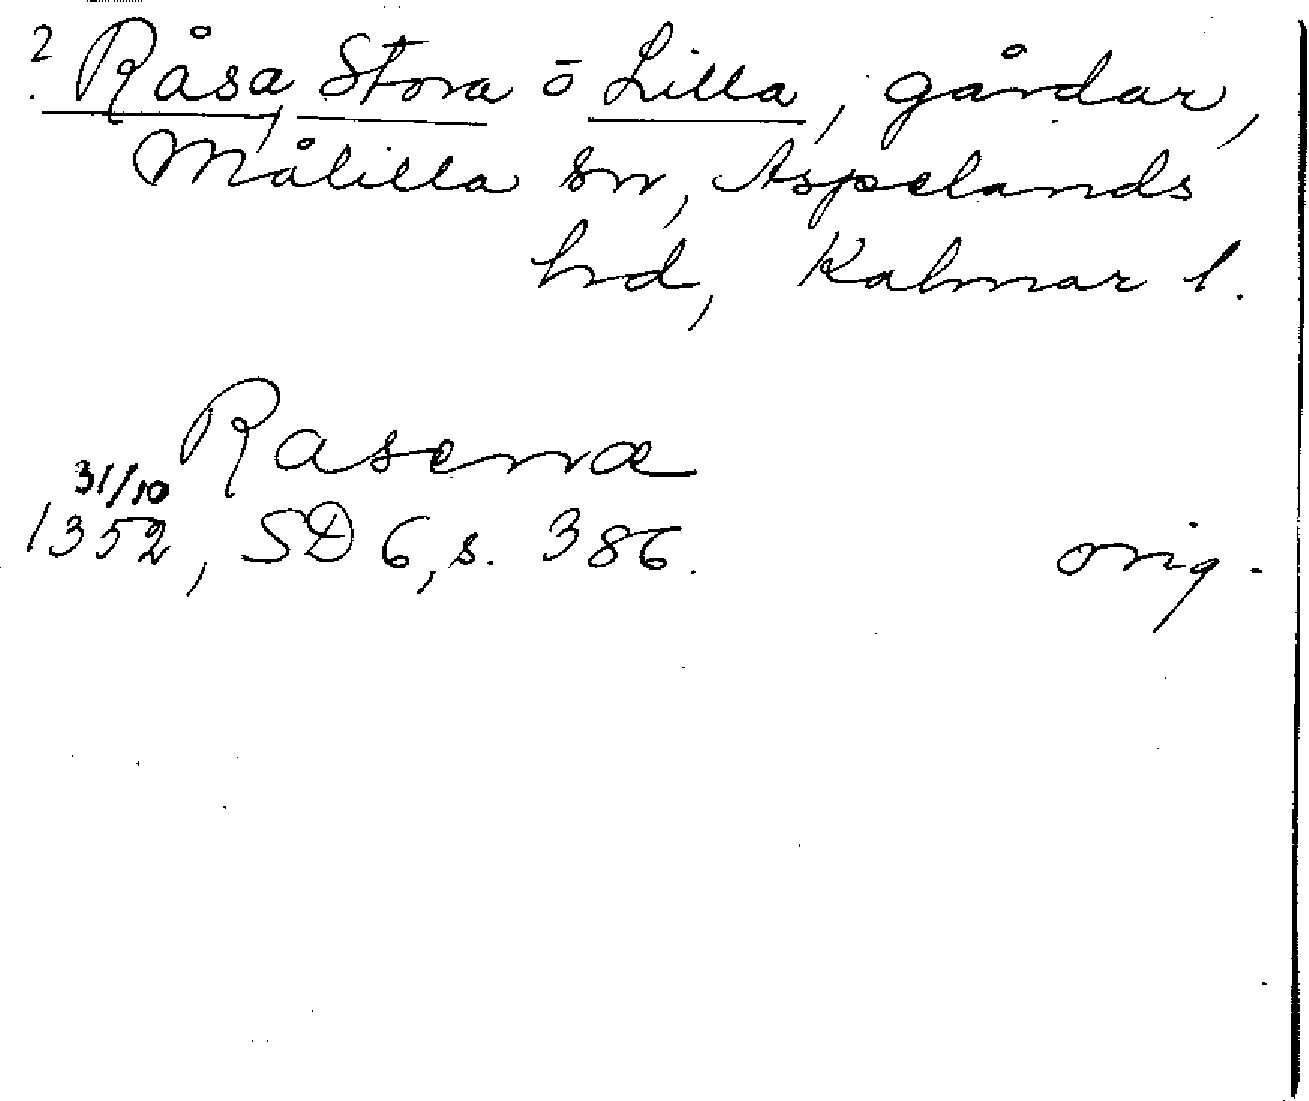 ? Råsa, Stora o Lilla, gårdar,
Målilla sn, Aspelands
hd, Kalmar l.
Rasæræ
31/10
1352, SD 6, s. 386. orig.